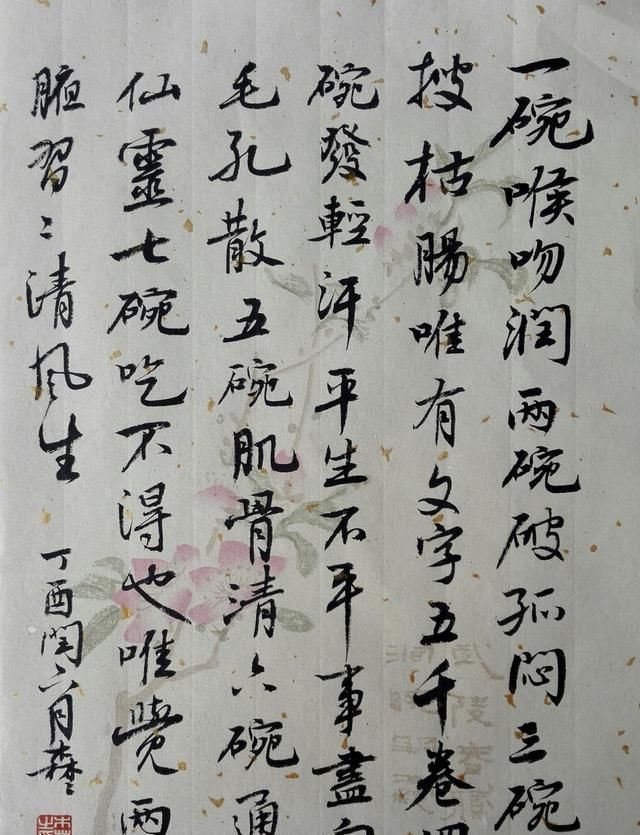 一碗喉吻潤兩碗破孤悶三碗
搜枯腸唯有文字五千卷四
碗發輕汗平生不平事盡向
毛孔散五碗肌骨清六碗通
仙靈七碗吃不得也唯覺兩
腋習〻清風生
丁酉閏六月